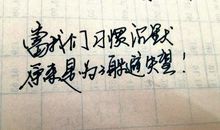 当我们习惯沉默
原来是为了躲避失望！